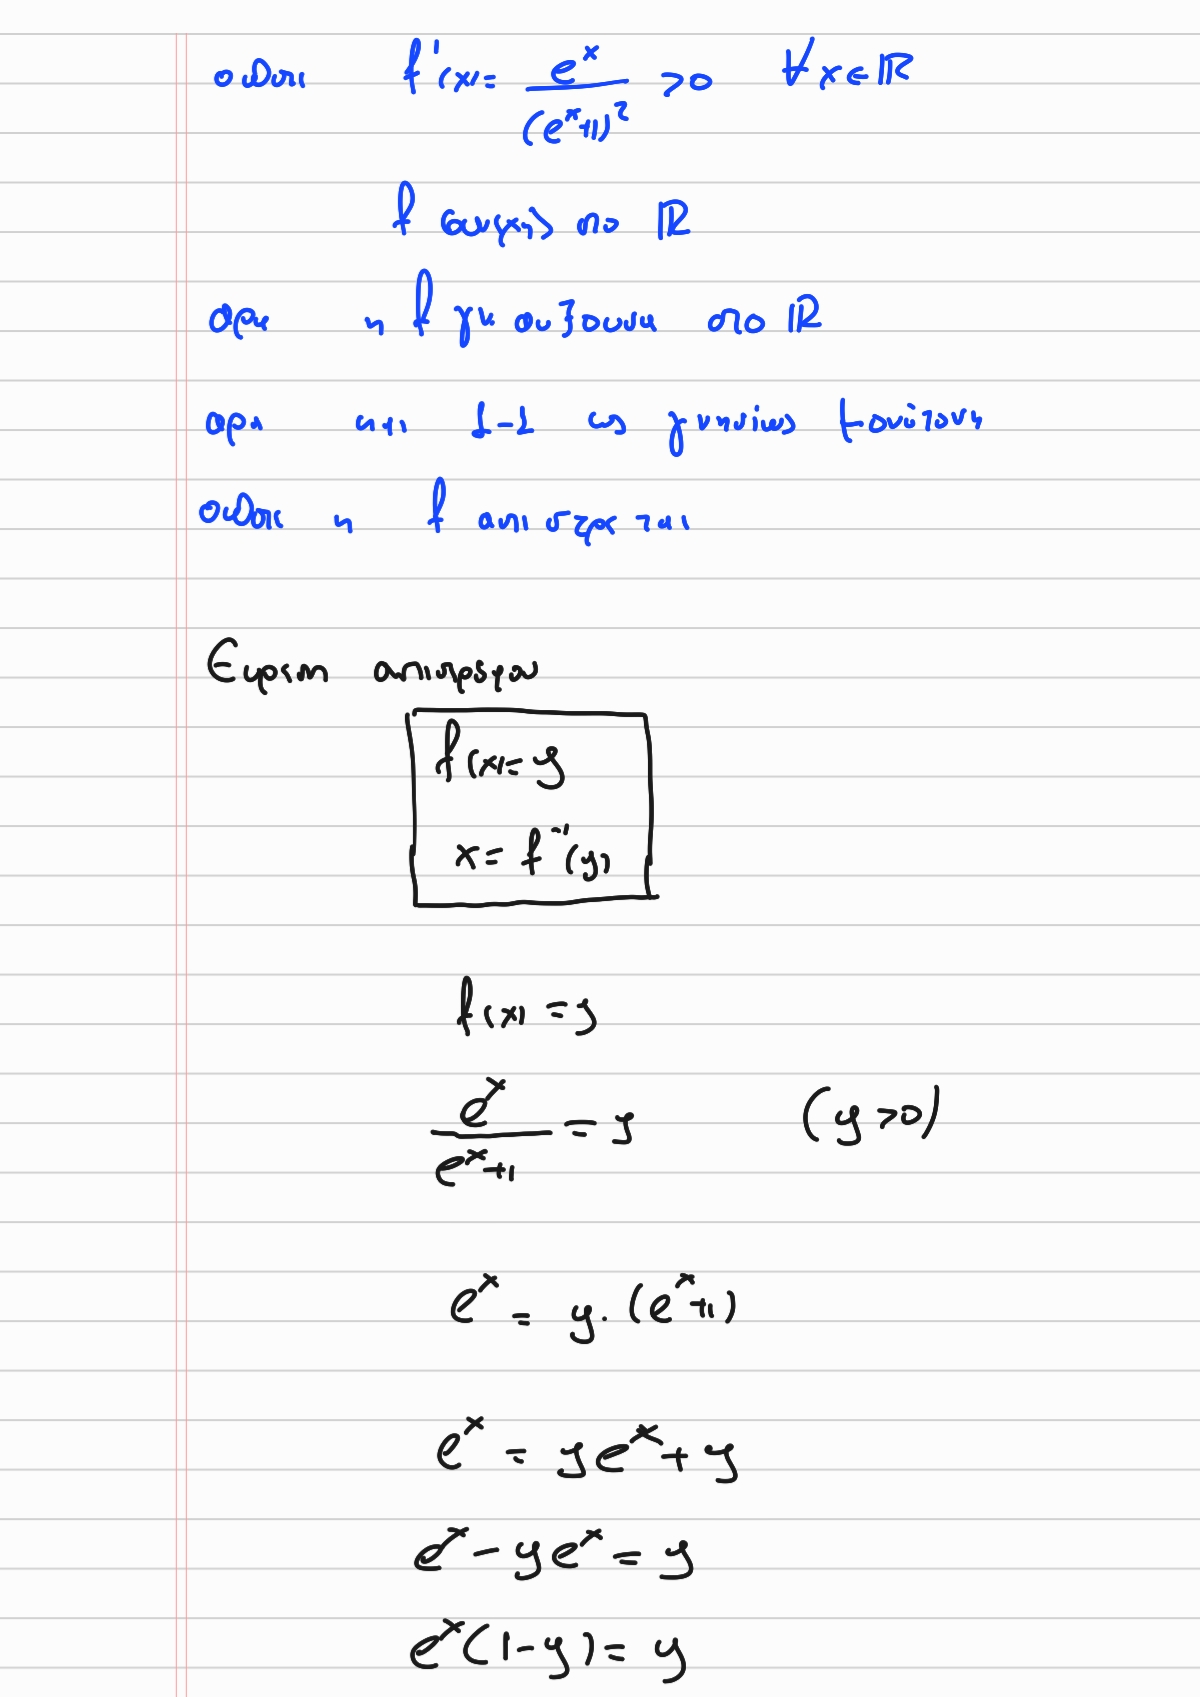 οπότε f'(x) = e^x / (e^x+1)^2 > 0 ∀x∈ℝ
f συνεχής στο ℝ
άρα η f γν αύξουσα στο ℝ
άρα και 1-1 ως γνησίως μονότονη
οπότε η f αντιστρέφεται
Εύρεση αντιστρόφου
f(x) = y
x = f^-1(y)
f(x) = y
e^x / (e^x+1) = y (y>0)
e^x = y·(e^x+1)
e^x = ye^x + y
e^x - ye^x = y
e^x(1-y) = y